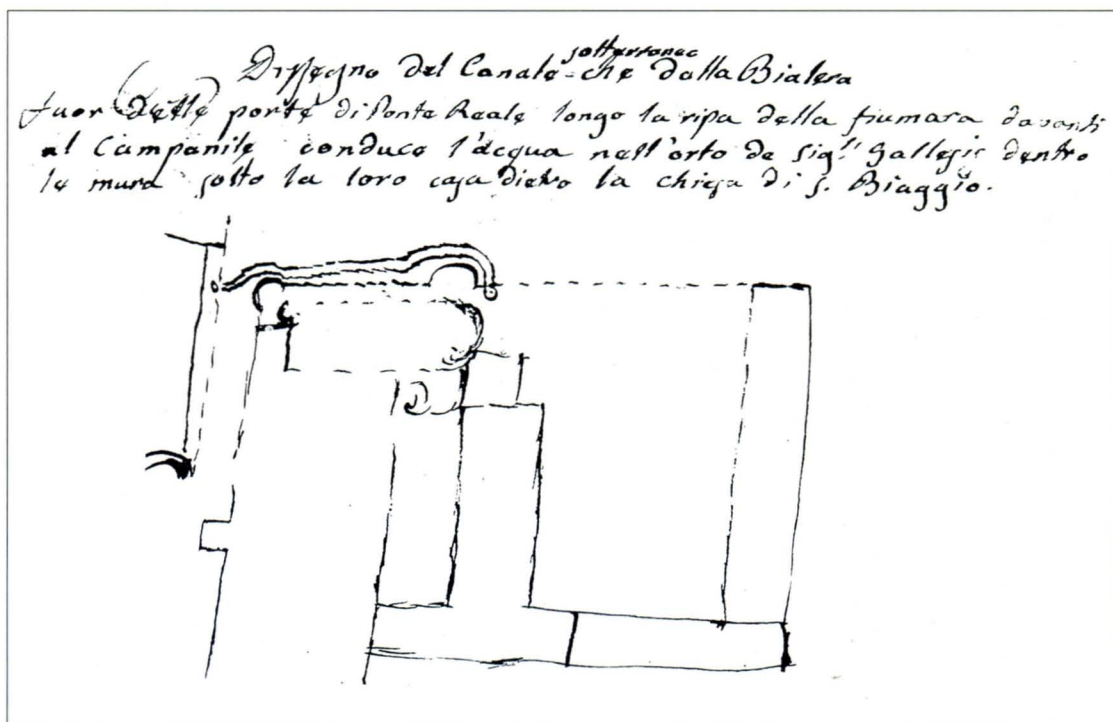 Dissegno del Canale sotterraneo che dalla Bialera
fuor delle porte di Ponte Reale longo la ripa della fiumara davanti
al Campanile conduce l'acqua nell'orto de Sig.ri Gallesii dentro
le mura sotto la loro casa dietro la chiesa di S. Biaggio.